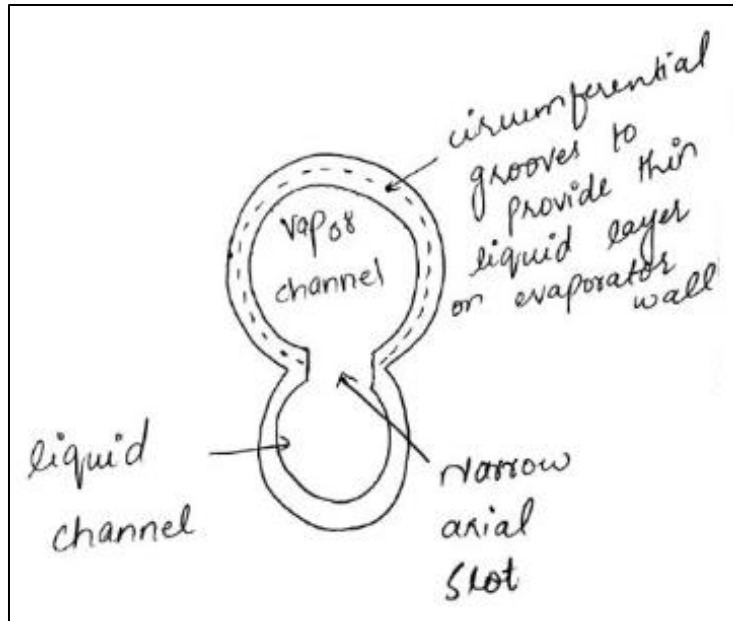 circumferential
grooves to
provide thin
liquid layer
on evaporator
wall
vapor
channel
liquid
channel
Narrow
axial
slot